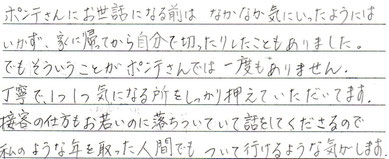 ポンテさんにお世話になる前は なかなか気にいったようには
いかず、家に帰ってから自分で切ったりしたこともありました。
でもそういうことがポンテさんでは一度もありません.
丁寧で、1つ1つ気になる所をしっかり押えていただいてます.
接客の仕方もお若いのに落ちついていて話をしてくださるので
私のような年を取った人間でも ついて行けるような気がします.